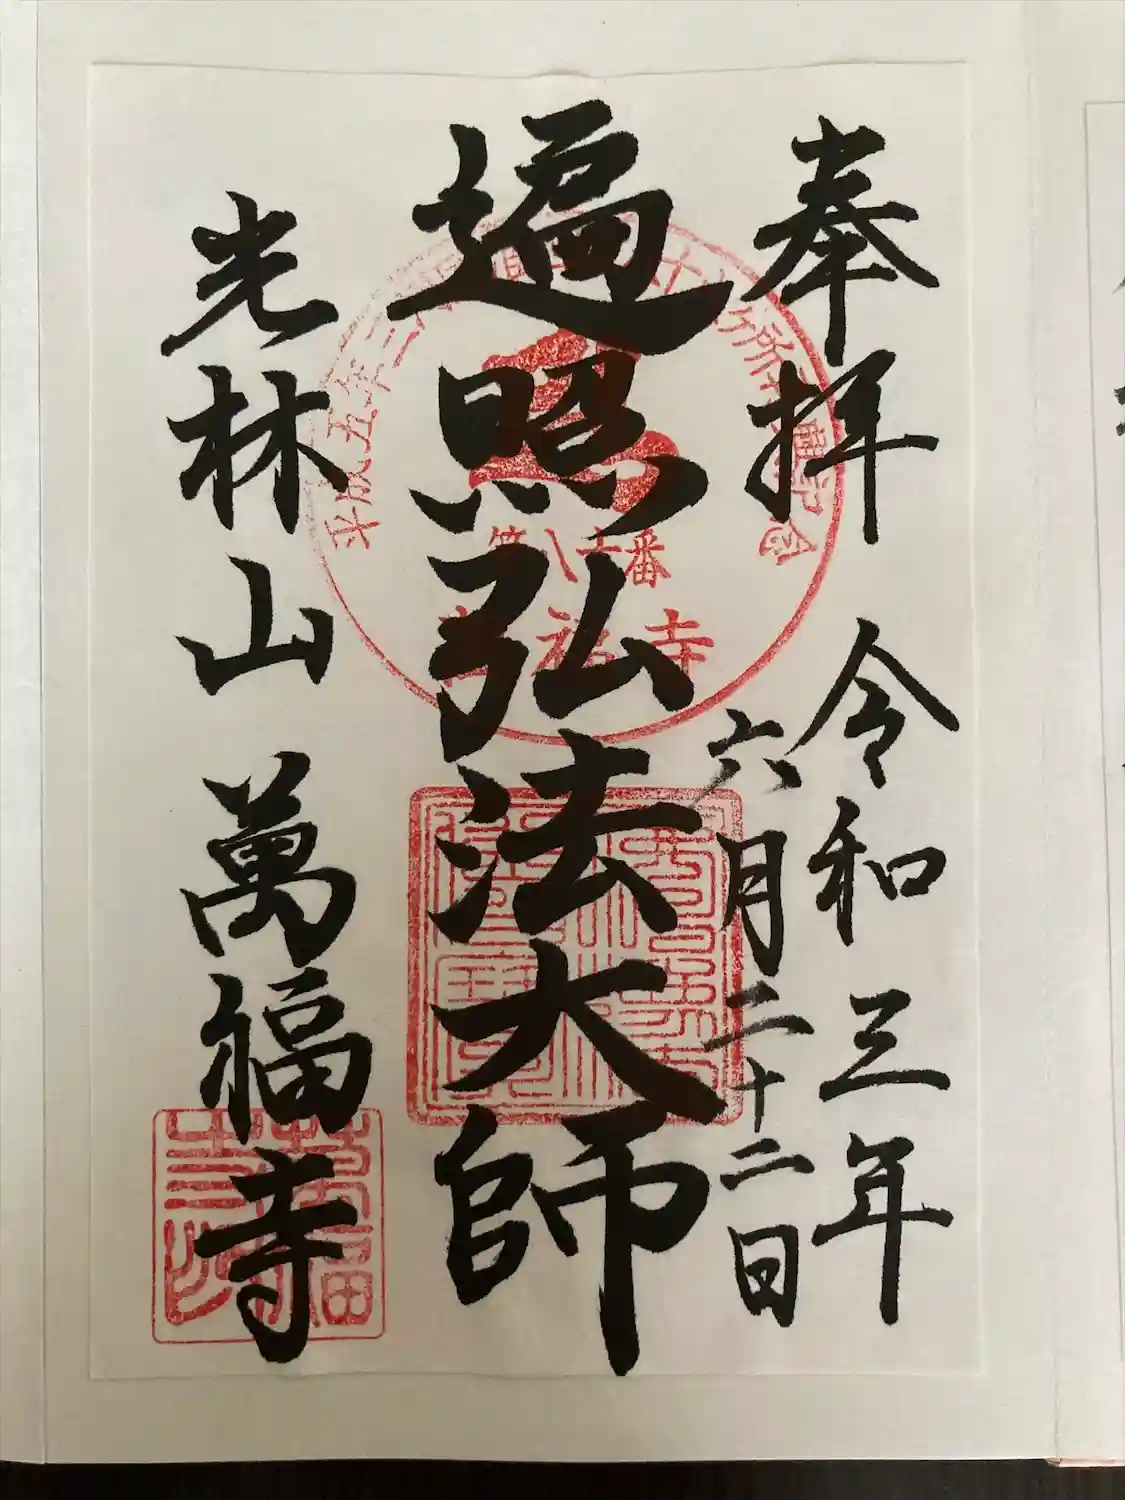 奉拝
令和三年
六月二十二日
遍照弘法大師
光林山 萬福寺
番
福寺